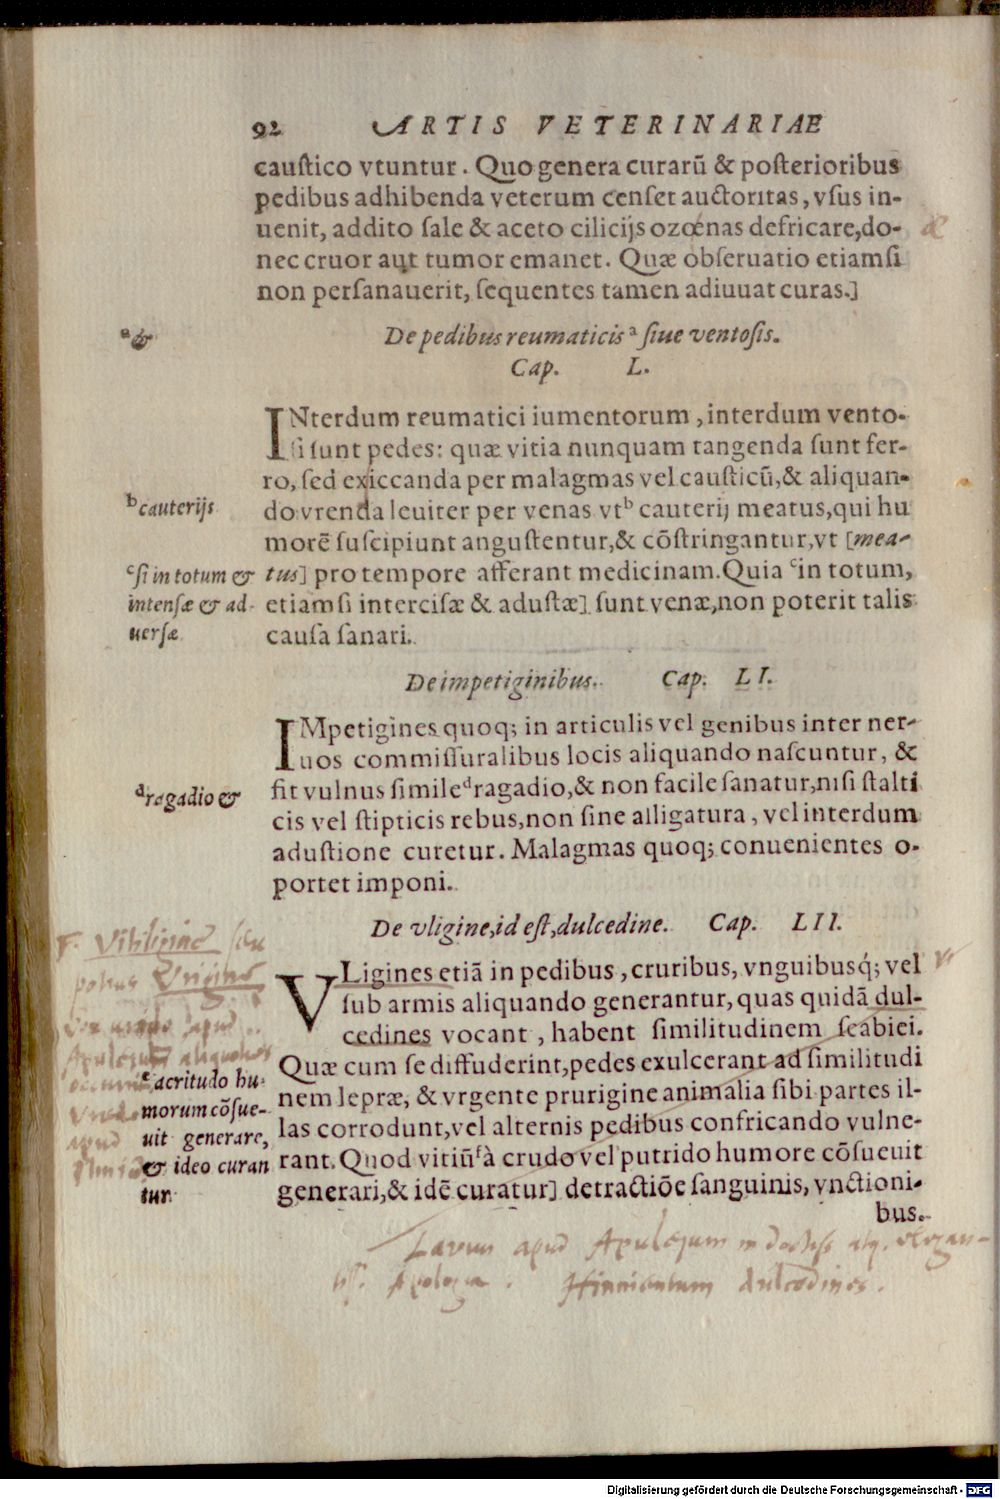 92 ARTIS VETERINARIAE
caustico vtuntur. Quo genera curarū & posterioribus
pedibus adhibenda veterum censet auctoritas, vsus in-
uenit, addito sale & aceto cilicijs ozœnas defricare, do-
nec cruor aut tumor emanet. Quæ obseruatio etiamsi
non persanauerit, sequentes tamen adiuuat curas.]
a &
De pedibus reumaticis a siue ventosis.
Cap. L.
INterdum reumatici iumentorum, interdum vento-
si sunt pedes: quæ vitia nunquam tangenda sunt fer-
ro, sed exiccanda per malagmas vel causticū, & aliquan-
b cauterijs
do vrenda leuiter per venas vt b cauterij meatus, qui hu
morē suscipiunt angustentur, & cōstringantur, vt [mea-
c si in totum &
tus] pro tempore afferant medicinam. Quia c in totum,
intensæ & ad-
etiamsi intercisæ & adustæ] sunt venæ, non poterit talis
uersæ
causa sanari.
De impetiginibus. Cap. LI.
IMpetigines quoq; in articulis vel genibus inter ner-
uos commissuralibus locis aliquando nascuntur, &
d ragadio &
fit vulnus simile d ragadio, & non facile sanatur, nisi stalti
cis vel stipticis rebus, non sine alligatura, vel interdum
adustione curetur. Malagmas quoq; conuenientes o-
portet imponi.
De vligine, id est, dulcedine. Cap. LII.
VLigines etiā in pedibus, cruribus, vnguibusq́; vel
sub armis aliquando generantur, quas quidā dul-
cedines vocant, habent similitudinem scabiei.
Quæ cum se diffuderint, pedes exulcerant ad similitudi
nem lepræ, & vrgente prurigine animalia sibi partes il-
las corrodunt, vel alternis pedibus confricando vulne-
rant. Quod vitiū f à crudo vel putrido humore cōsueuit
generari, & idē curatur] detractiōe sanguinis, vnctioni-
bus.
e acritudo hu-
morum cōsue-
uit generare,
& ideo curan
tur
apud Apulejum in
Apologia. Hinnientum dulcedines.
Digitalisierung gefördert durch die Deutsche Forschungsgemeinschaft - DFG